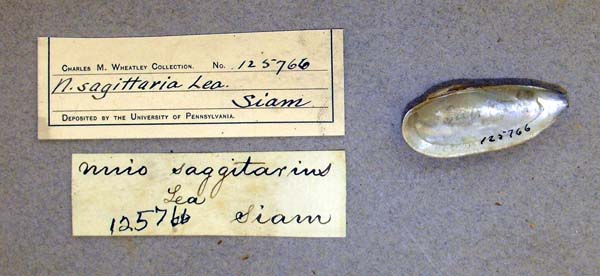 CHARLES M. WHEATLEY COLLECTION. No. 125766
N. sagittaria Lea.
Siam
DEPOSITED BY THE UNIVERSITY OF PENNSYLVANIA.
unio saggitarius
Lea
125766 Siam
125766